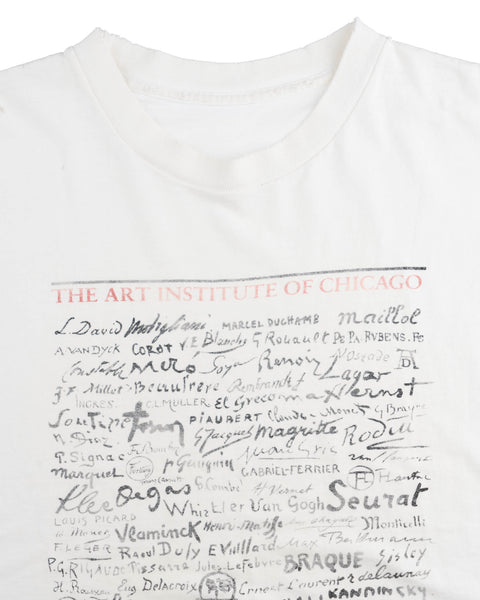 THE ART INSTITUTE OF CHICAGO
L. David Modigliani MARCEL DUCHAMB Maillol
A. VAN DYCK COROT J.E. Blanche G Rouault P.P. RVBENS. Fc
Constable Miró Goya Renoir
J.F. Millet Rembrandt Lagar
INGRES. CL MULLER El Greco max Ernst
Soutine PIAUBERT Claude Monet G Braque
N. Diaz G Jacquet Magritte Rodin
P. Signac Juan Gris
Marquet P Gauguin GABRIEL-FERRIER
Klee Degas H. Vernet
Whistler Van Gogh Seurat
LOUIS PICARD
Vlaminck Henri-Matisse Monticelli
F. LEGER Raoul Dufy E Vuillard Max Beckmann
P.G. RIGAUD Pissarro Jules Lefebvre BRAQUE Sisley
H. Rousseau Eug Delacroix Ernest Laurent r delaunay
KANDINSKY